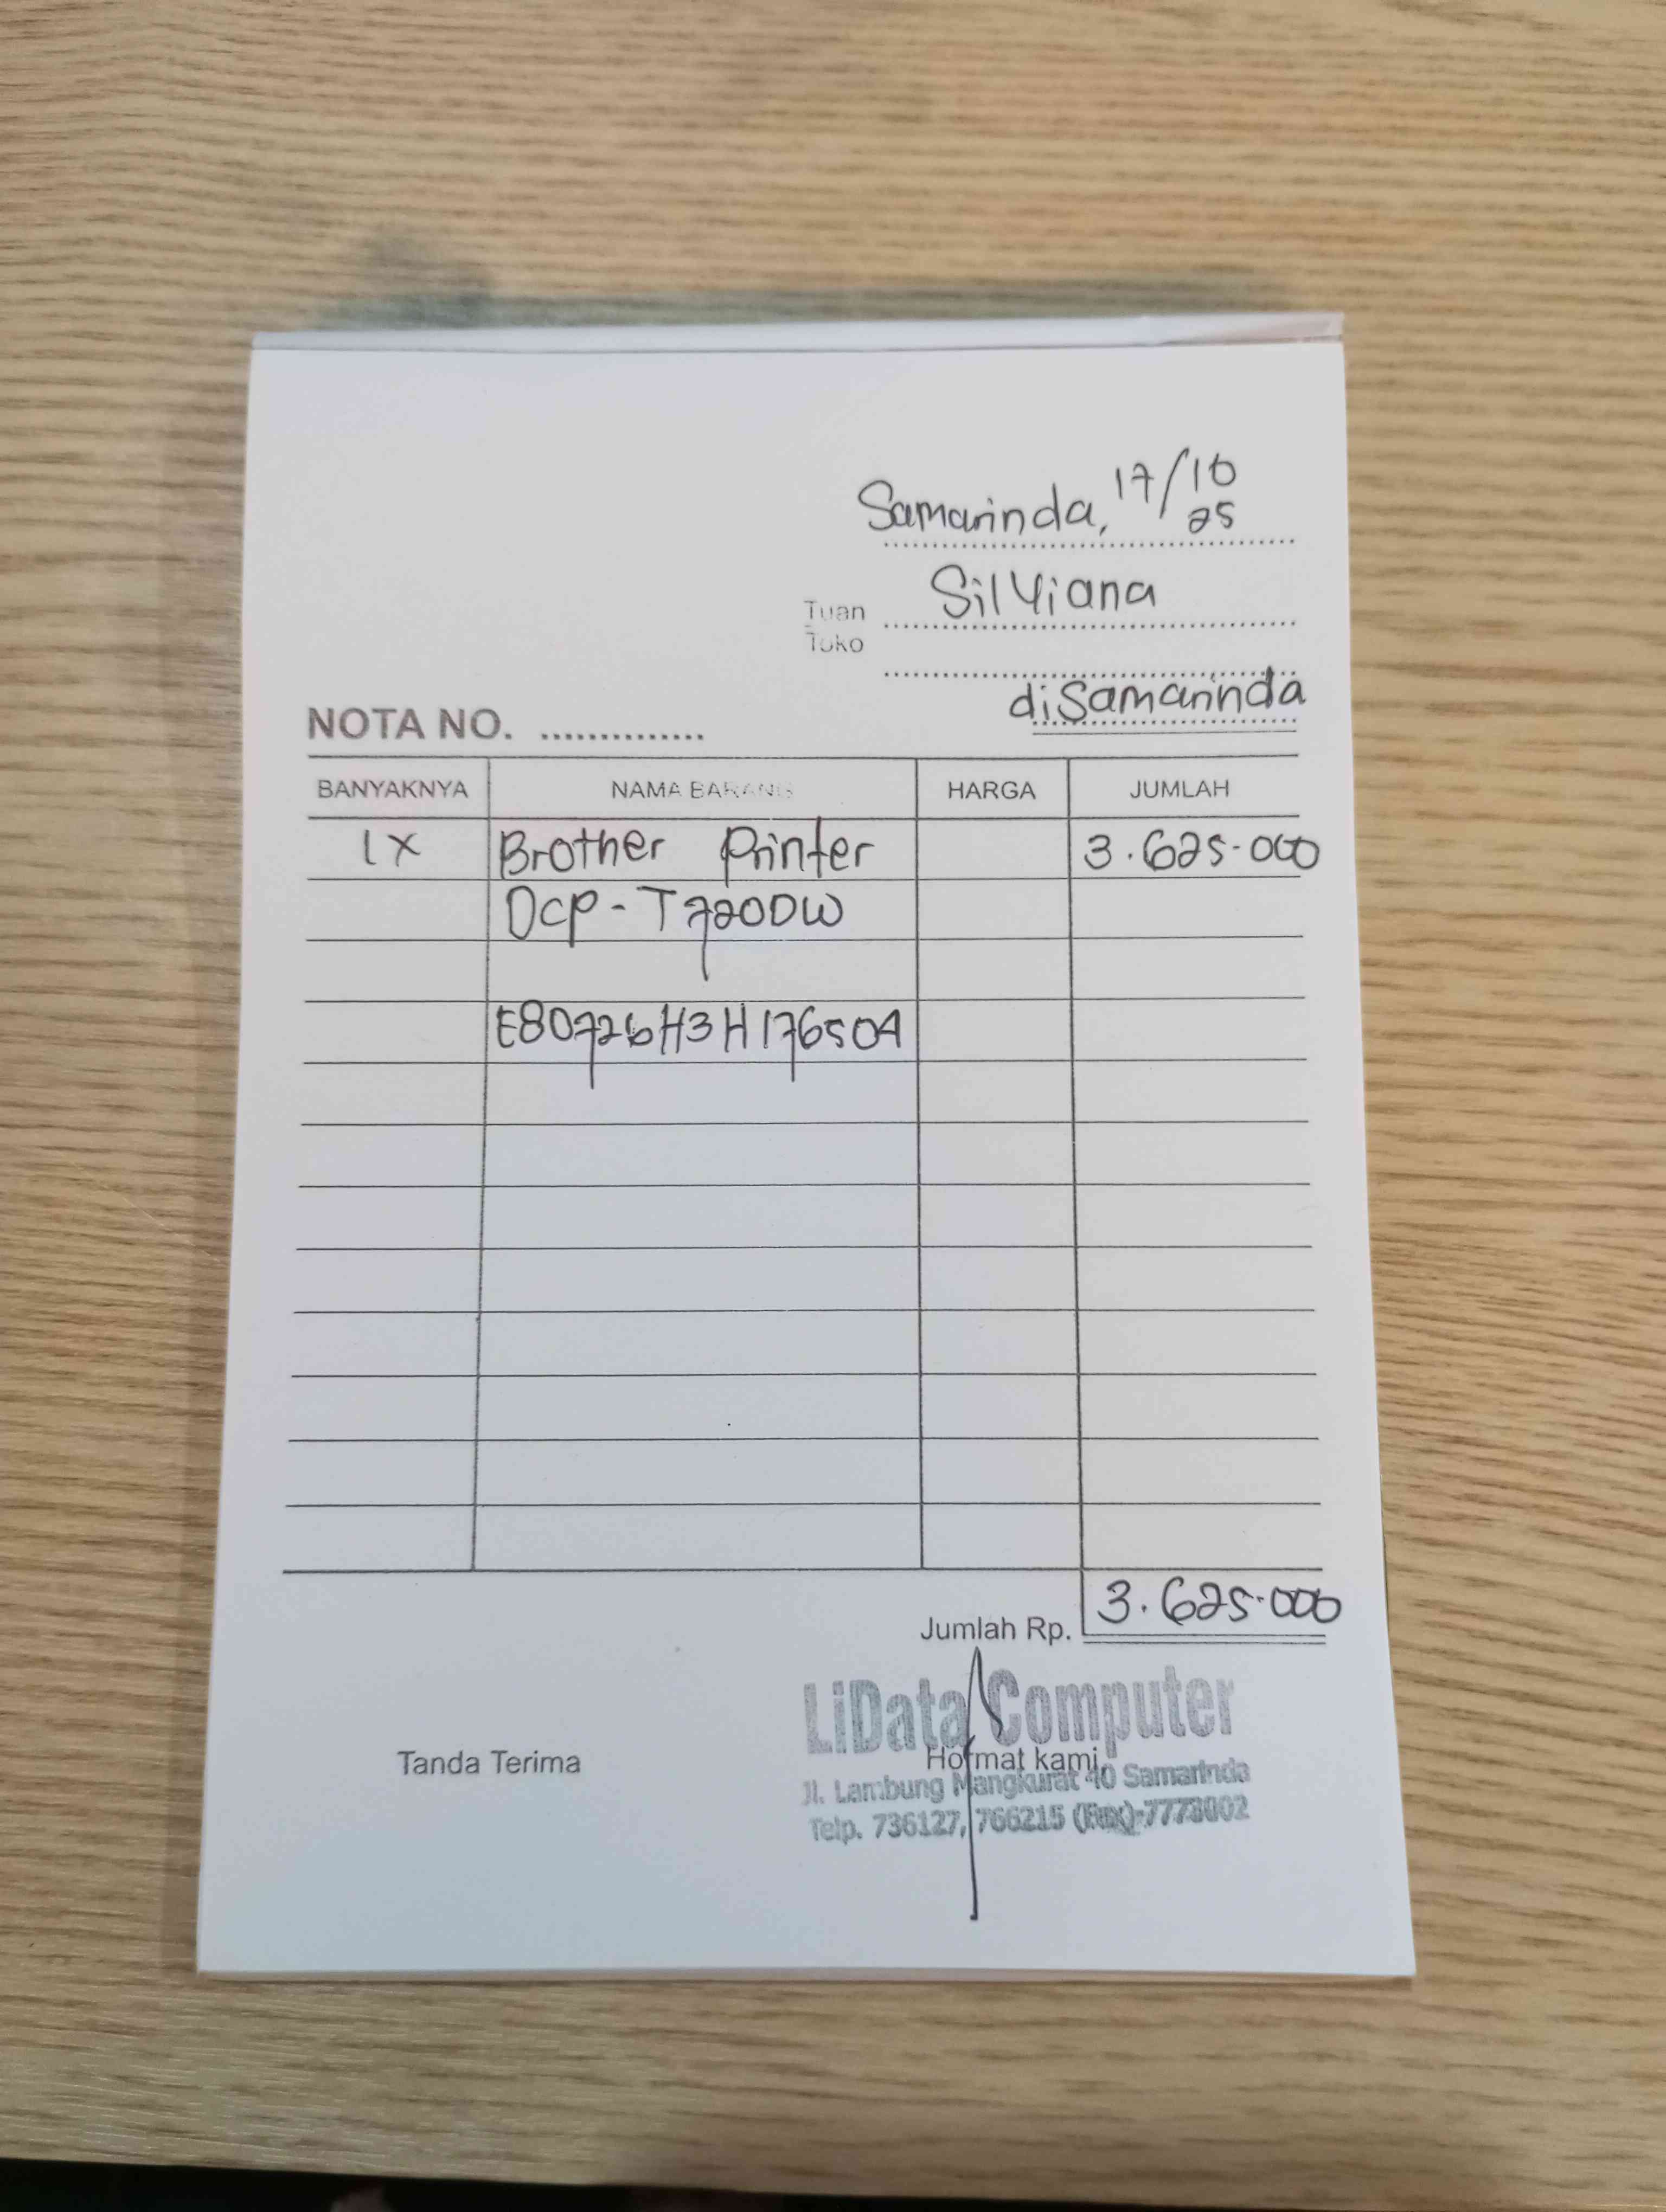 Samarinda, 17/10
25
Tuan Silviana
Toko
di Samarinda
NOTA NO. ..............
BANYAKNYA NAMA BARANG HARGA JUMLAH
1X Brother Printer 3.625.000
DCP-T720DW
E80726H3H176504
Jumlah Rp. 3.625.000
LiData Computer
Tanda Terima Hormat kami,
Jl. Lambung Mangkurat 40 Samarinda
Telp. 736127, 766215 (Fax)